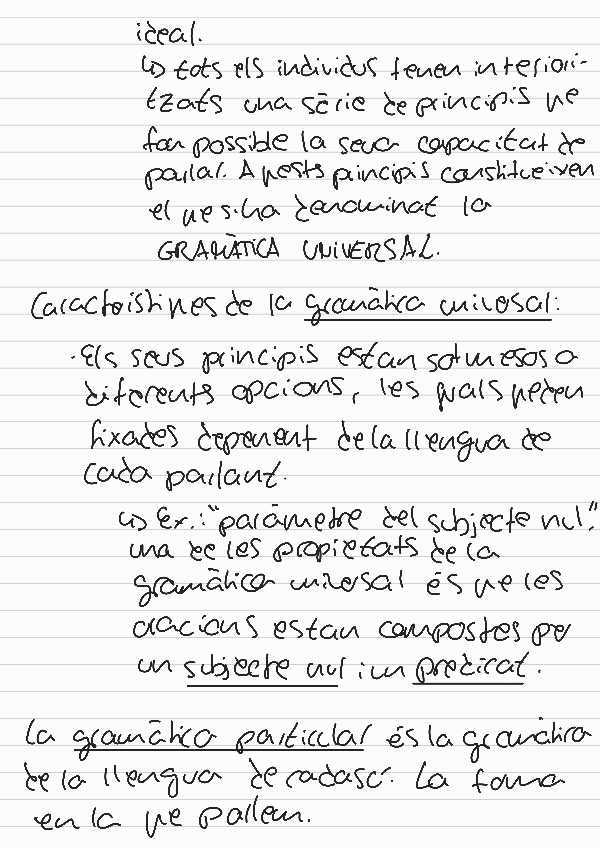 ideal.
↳ tots els individus tenen interiori-
tzats una sèrie de principis que
fan possible la seva capacitat de
parlar. Aquests principis constitueixen
el que s'ha denominat la
GRAMÀTICA UNIVERSAL.
Característiques de la gramàtica universal:
· Els seus principis estan sotmesos a
diferents opcions, les quals queden
fixades depenent de la llengua de
cada parlant.
↳ Ex.: "paràmetre del subjecte nul":
una de les propietats de la
gramàtica universal és que les
oracions estan compostes per
un subjecte nul i un predicat.
La gramàtica particular és la gramàtica
de la llengua de cadascú. La forma
en la que parlem.